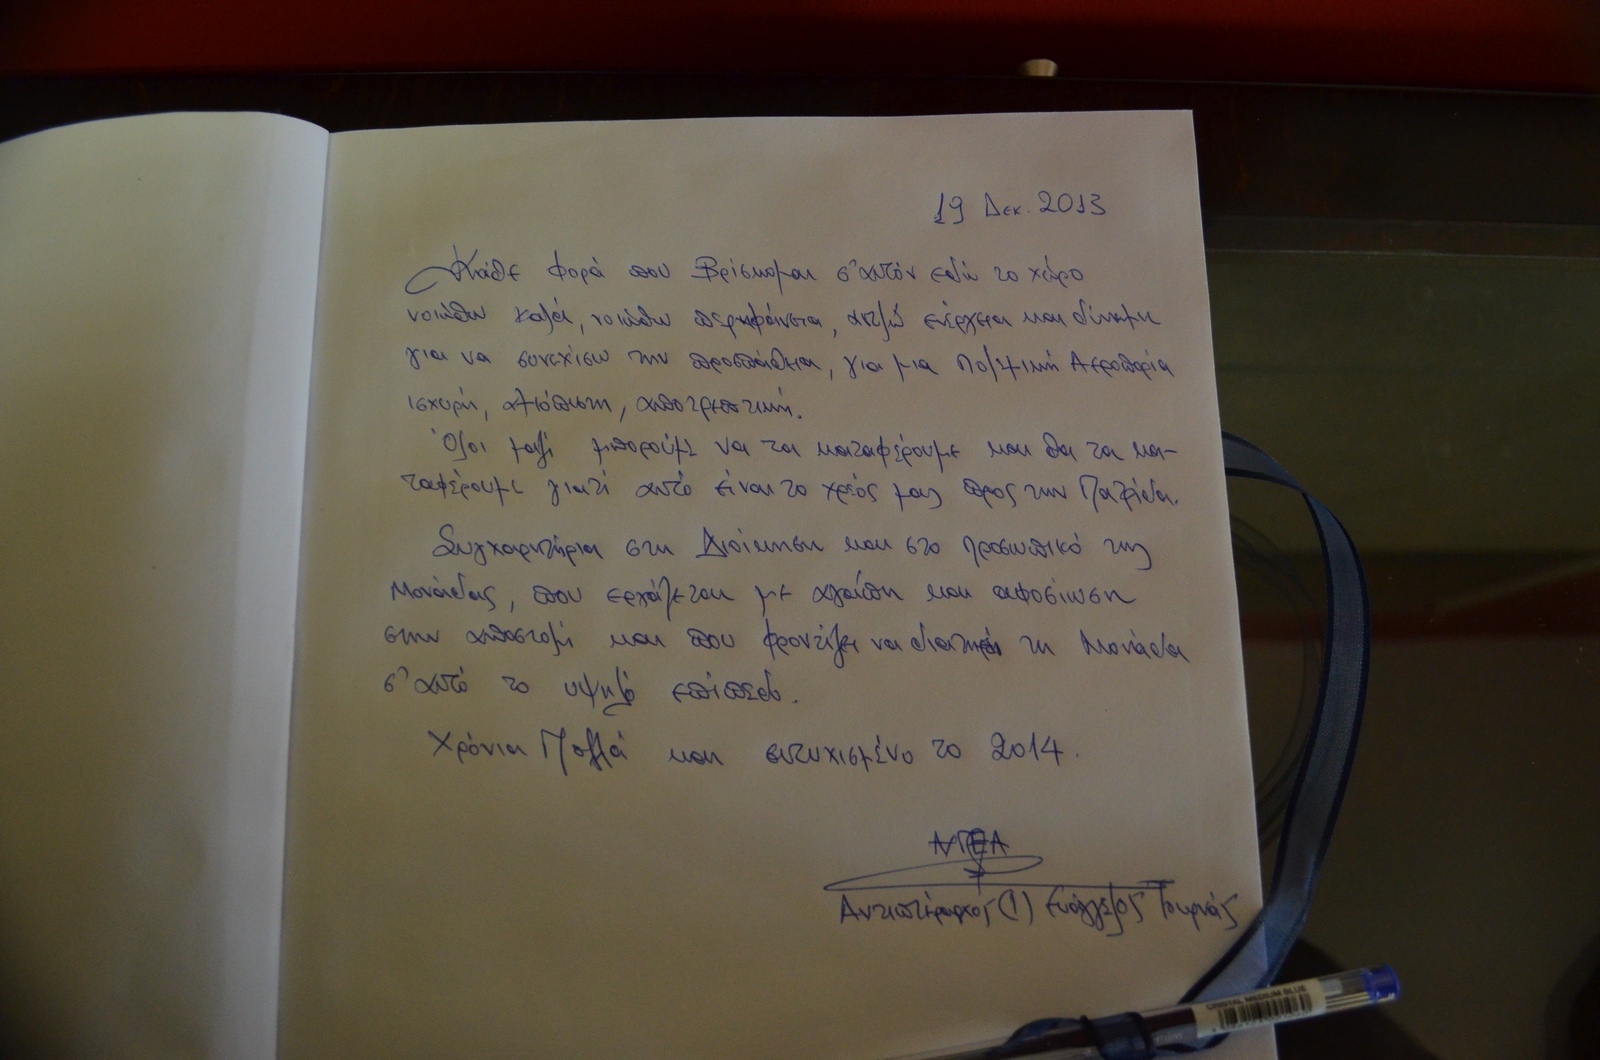 19 Δεκ. 2013
Κάθε φορά που βρίσκομαι σ' αυτόν εδώ το χώρο
νοιώθω καλά, νοιώθω περηφάνεια, αντλώ ενέργεια και δύναμη
για να συνεχίσω την προσπάθεια, για μια Πολεμική Αεροπορία
ισχυρή, αξιόπιστη, αποτρεπτική.
Όλοι μαζί μπορούμε να τα καταφέρουμε και θα τα κα-
ταφέρουμε γιατί αυτό είναι το χρέος μας προς την Πατρίδα.
Συγχαρητήρια στη Διοίκηση και στο προσωπικό της
Μονάδας, που εργάζεται με αγάπη και αφοσίωση
στην αποστολή και που φροντίζει να διατηρεί τη Μονάδα
σ' αυτό το υψηλό επίπεδο.
Χρόνια Πολλά και ευτυχισμένο το 2014.
Αντιπτέραρχος (Ι) Ευάγγελος Τουρνάς
CRISTAL MEDIUM BLUE